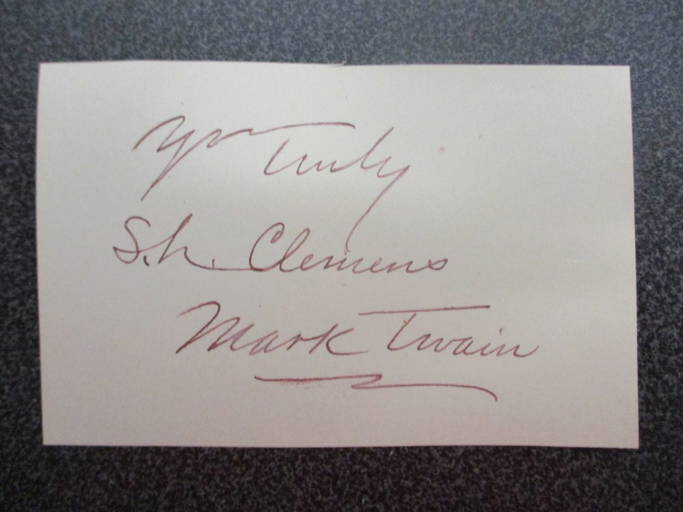 Yrs Truly
S. L. Clemens
Mark Twain